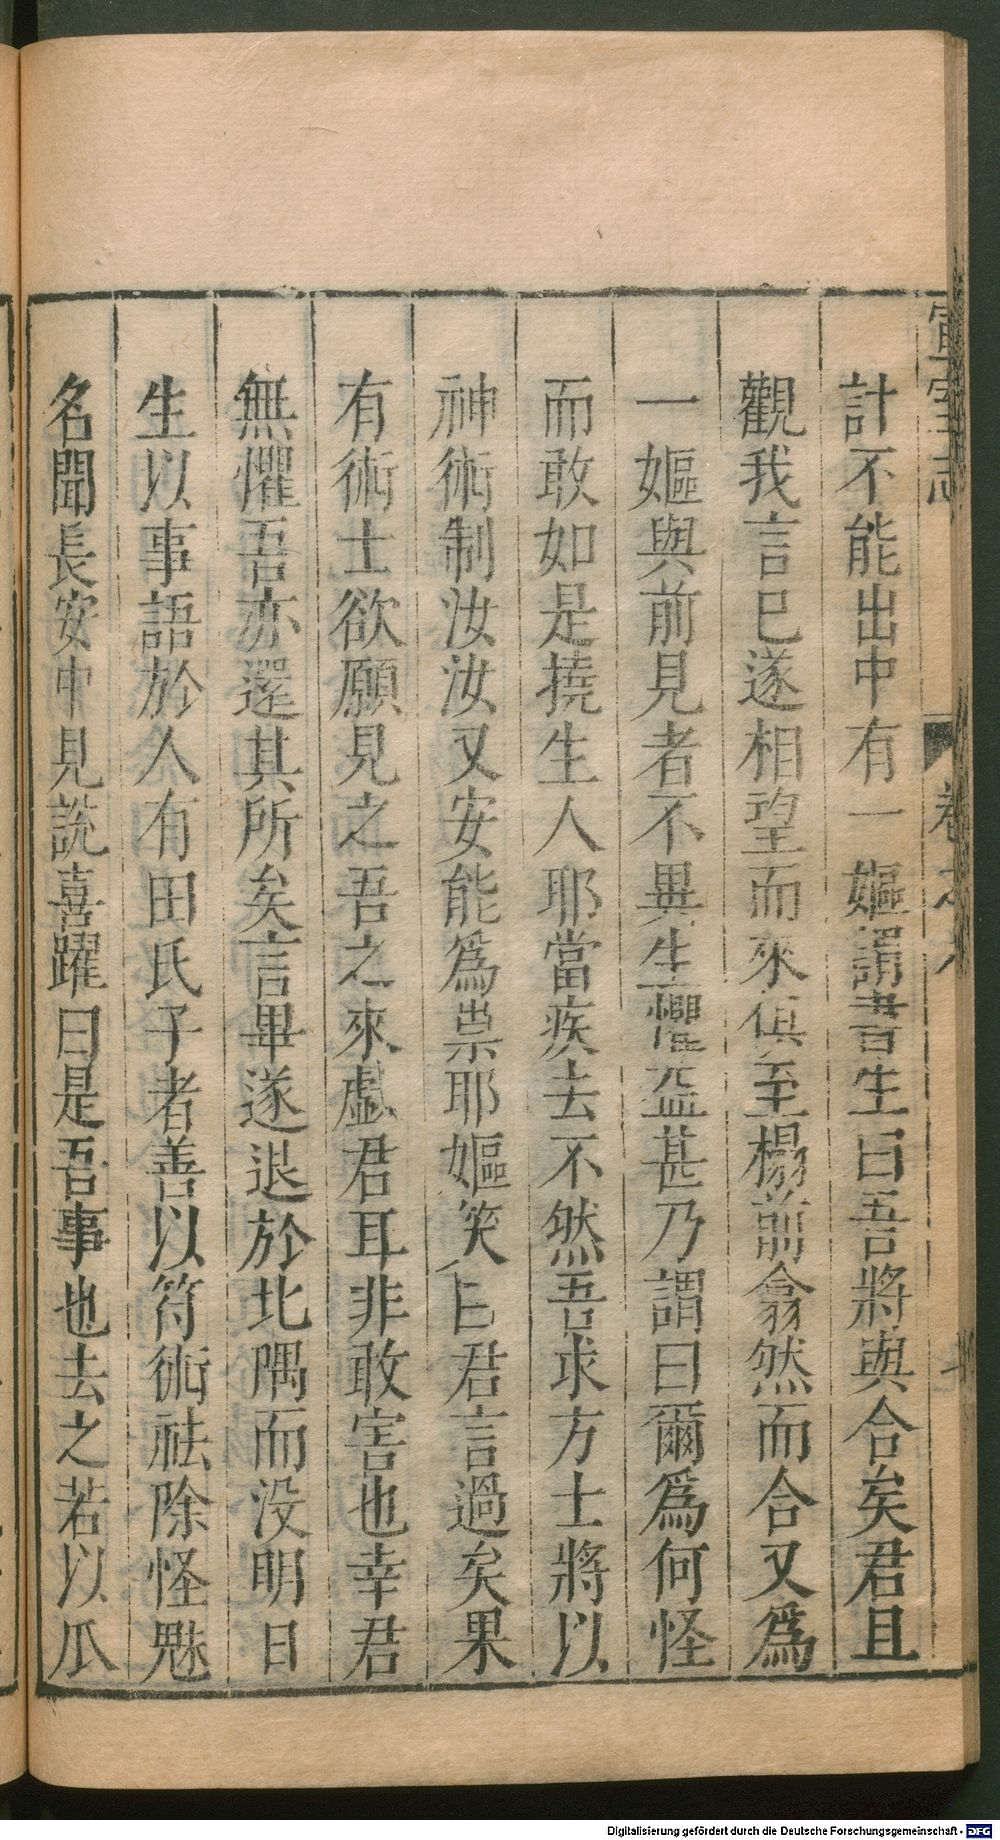 宣室志
卷之八
計不能出中有一嫗謂書生曰吾將與合矣君且
觀我言已遂相望而來俱至榻前翕然而合又爲
一嫗與前見者不異生懼益甚乃謂曰爾爲何怪
而敢如是撓生人耶當疾去不然吾求方士將以
神術制汝汝又安能爲祟耶嫗笑曰君言過矣果
有術士欲願見之吾之來戯君耳非敢害也幸君
無懼吾亦還其所矣言畢遂退於北隅而没明日
生以事語於人有田氏子者善以符術祛除怪魅
名聞長安中見説喜躍曰是吾事也去之若以爪
Digitalisierung gefördert durch die Deutsche Forschungsgemeinschaft - DFG